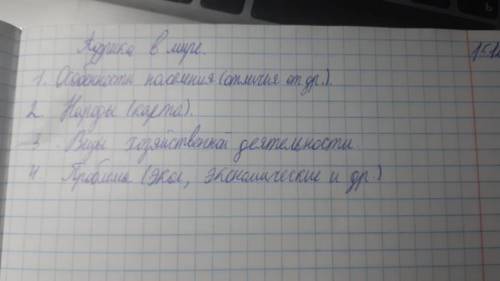 Африка в мире.
1. Особенности населения (отличия от др.).
2. Народы (карта).
3. Виды хозяйственной деятельности.
4. Проблемы (экол, экономические и др.)